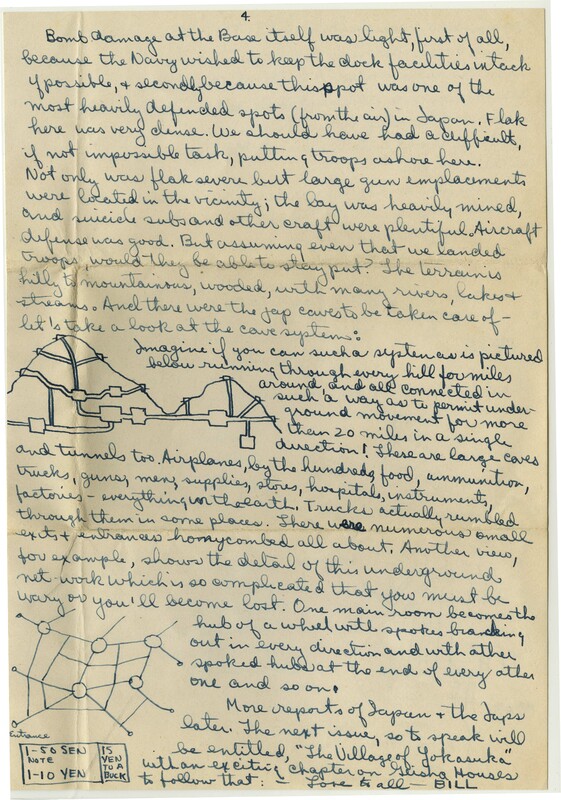 4.
Bomb damage at the Base itself was light, first of all,
because the Navy wished to keep the dock facilities intack
if possible, & secondly because this spot was one of the
most heavily defended spots (from the air) in Japan. Flak
here was very dense. We should have had a difficult,
if not impossible task, putting troops ashore here.
Not only was flak severe but large gun emplacements
were located in the vicinity; the bay was heavily mined,
and suicide subs and other craft were plentiful. Aircraft
defense was good. But assuming even that we landed
troops, would they be able to stay put? The terrain is
hilly to mountainous, wooded, with many rivers, lakes &
streams. And there were the Jap caves to be taken care of -
let's take a look at the cave system:
Imagine if you can such a system as is pictured
below running through every hill for miles
around and all connected in
such a way as to permit under-
ground movement for more
than 20 miles in a single
direction! There are large caves
and tunnels too. Airplanes, by the hundreds, food, ammunition,
trucks, guns, men, supplies, stores, hospitals, instruments,
factories - everything on the earth. Trucks actually rumbled
through them in some places. There were numerous small
exits & entrances honeycombed all about. Another view,
for example, shows the detail of this underground
net-work which is so complicated that you must be
wary or you'll become lost. One main room becomes the
hub of a wheel with spokes branching
out in every direction and with other
spoked hubs at the end of every other
one and so on.
Entrance
More reports of Japan & the Japs
later. The next issue, so to speak will
be entitled, "The Village of Yokasuka"
with an exciting chapter on Geisha Houses
to follow that: - Love to all - BILL
1-50 SEN
NOTE
1-10 YEN
15
YEN
TO A
BUCK